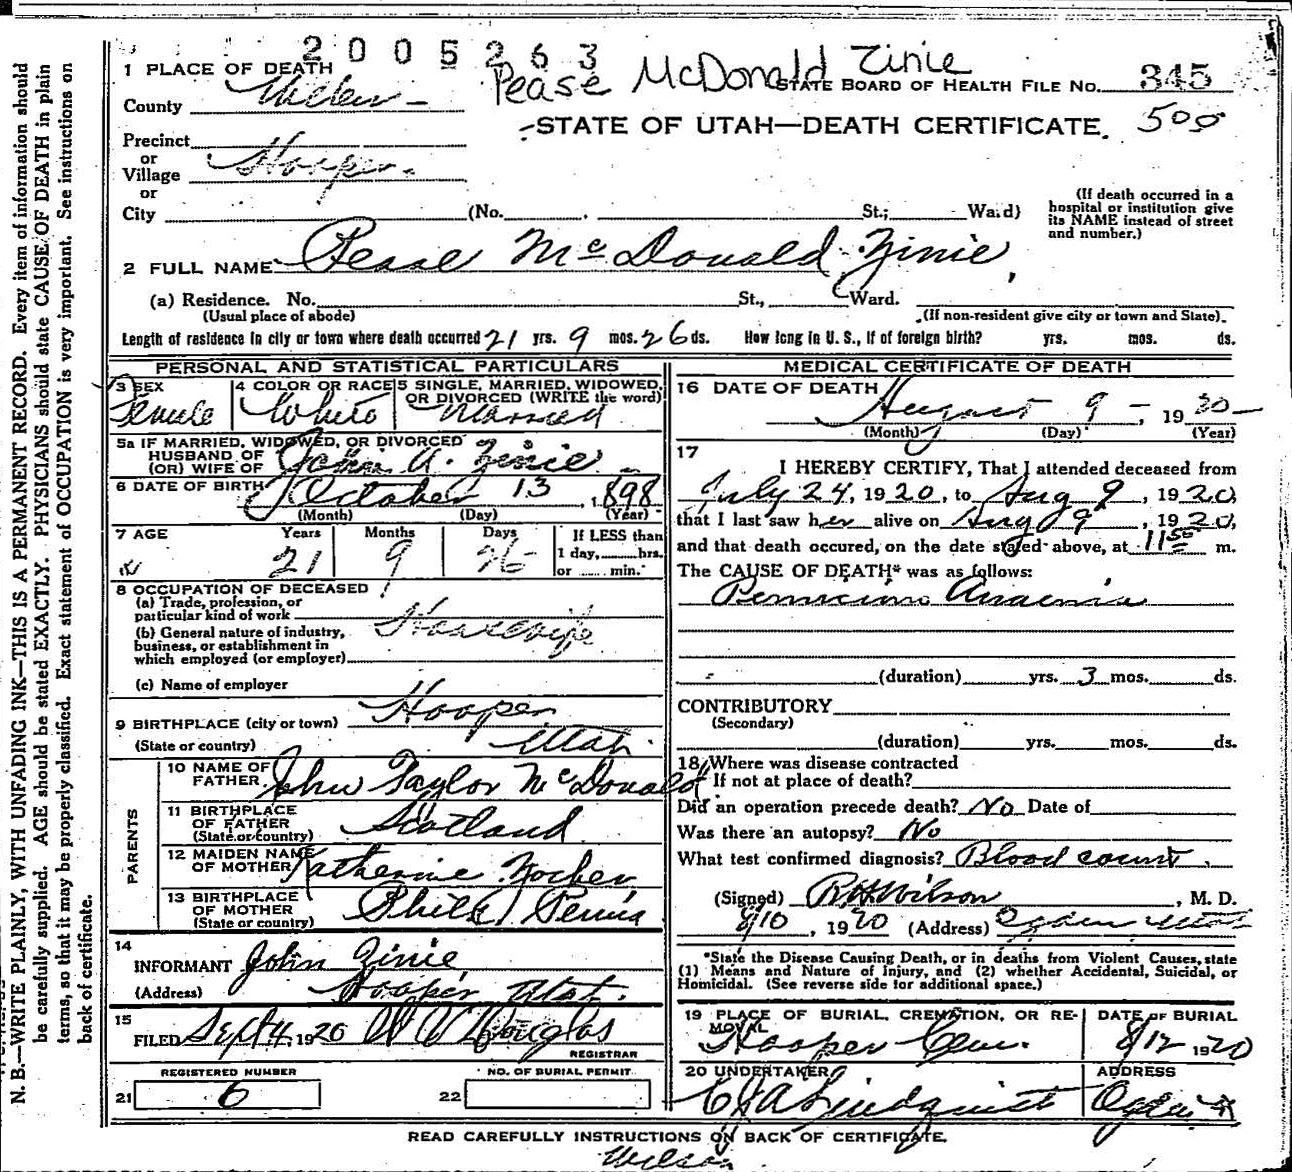 2005263
Pease McDonald Zinie
1 PLACE OF DEATH
STATE BOARD OF HEALTH FILE No. 345
County Weber
STATE OF UTAH—DEATH CERTIFICATE. 500
Precinct
or
Village Hooper.
or
City (No. St.; Ward)
(If death occurred in a hospital or institution give its NAME instead of street and number.)
2 FULL NAME Pease McDonald Zinie,
(a) Residence. No. St., Ward.
(Usual place of abode) (If non-resident give city or town and State).
Length of residence in city or town where death occurred 21 yrs. 9 mos. 26 ds. How long in U. S., if of foreign birth? yrs. mos. ds.
PERSONAL AND STATISTICAL PARTICULARS
3 SEX Female
4 COLOR OR RACE White
5 SINGLE, MARRIED, WIDOWED, OR DIVORCED (WRITE the word) Married
5a IF MARRIED, WIDOWED, OR DIVORCED
HUSBAND OF
(OR) WIFE OF John A. Zinie
6 DATE OF BIRTH October 13, 1898
(Month) (Day) (Year)
7 AGE Years Months Days If LESS than
21 9 26 1 day, hrs.
or min.
8 OCCUPATION OF DECEASED
(a) Trade, profession, or
particular kind of work Housewife
(b) General nature of industry,
business, or establishment in
which employed (or employer)
(c) Name of employer
9 BIRTHPLACE (city or town) Hooper
(State or country) Utah.
PARENTS
10 NAME OF FATHER John Taylor McDonald
11 BIRTHPLACE OF FATHER (State or country) Scotland
12 MAIDEN NAME OF MOTHER Katherine
13 BIRTHPLACE OF MOTHER (State or country) Phila Penna
14
INFORMANT John Zinie,
(Address) Hooper Utah.
15
FILED Sept 4, 1920 Douglas
REGISTRAR
REGISTERED NUMBER NO. OF BURIAL PERMIT
21 6 22
MEDICAL CERTIFICATE OF DEATH
16 DATE OF DEATH August 9 - , 1920
(Month) (Day) (Year)
17
I HEREBY CERTIFY, That I attended deceased from
July 24, 1920, to Aug 9, 1920,
that I last saw her alive on Aug 9, 1920,
and that death occured, on the date stated above, at 11 50 m.
The CAUSE OF DEATH* was as follows:
Pernicious Anaemia
(duration) yrs. 3 mos. ds.
CONTRIBUTORY
(Secondary)
(duration) yrs. mos. ds.
18 Where was disease contracted
If not at place of death?
Did an operation precede death? No Date of
Was there an autopsy? No
What test confirmed diagnosis? Blood count.
(Signed) R H Wilson, M. D.
8/10, 1920 (Address) Ogden Utah
*State the Disease Causing Death, or in deaths from Violent Causes, state
(1) Means and Nature of Injury, and (2) whether Accidental, Suicidal, or
Homicidal. (See reverse side for additional space.)
19 PLACE OF BURIAL, CREMATION, OR REMOVAL DATE OF BURIAL
Hooper Cem. 8/12 1920
20 UNDERTAKER ADDRESS
Lindquist Ogden
READ CAREFULLY INSTRUCTIONS ON BACK OF CERTIFICATE.
Wilson
N. B.—WRITE PLAINLY, WITH UNFADING INK—THIS IS A PERMANENT RECORD. Every item of information should
be carefully supplied. AGE should be stated EXACTLY. PHYSICIANS should state CAUSE OF DEATH in plain
terms, so that it may be properly classified. Exact statement of OCCUPATION is very important. See instructions on
back of certificate.